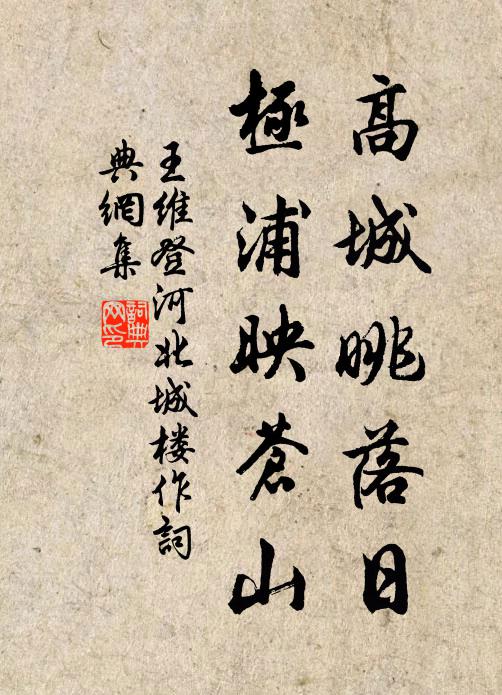 高城眺落日
極浦映蒼山
王維登河北城楼作詞
典網集
詞典網印